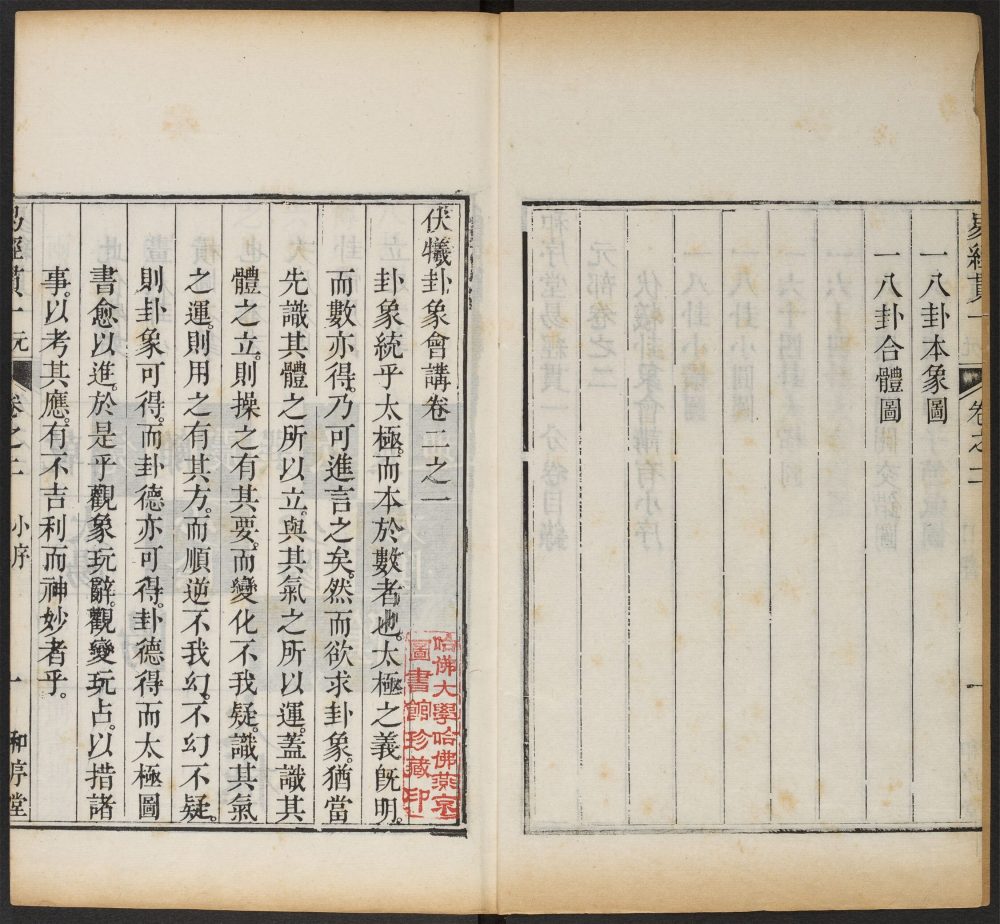 易經貫一
卷之二
一
一八卦本象圖
一八卦合體圖
伏犧卦象會講卷二之一
卦象統乎太極。而本於數者也。太極之義既明。
而數亦得。乃可進言之矣。然而欲求卦象。猶當
先識其體之所以立。與其氣之所以運。蓋識其
體之立。則操之有其要。而變化不我疑。識其氣
之運。則用之有其方。而順逆不我幻。不幻不疑。
則卦象可得。而卦德亦可得。卦德得而太極圖
書愈以進。於是乎觀象玩辭。觀變玩占。以措諸
事。以考其應。有不吉利而神妙者乎。
哈佛大學哈佛燕京
圖書館珍藏印
易經貫一 元
卷之二 小序
一 和序堂